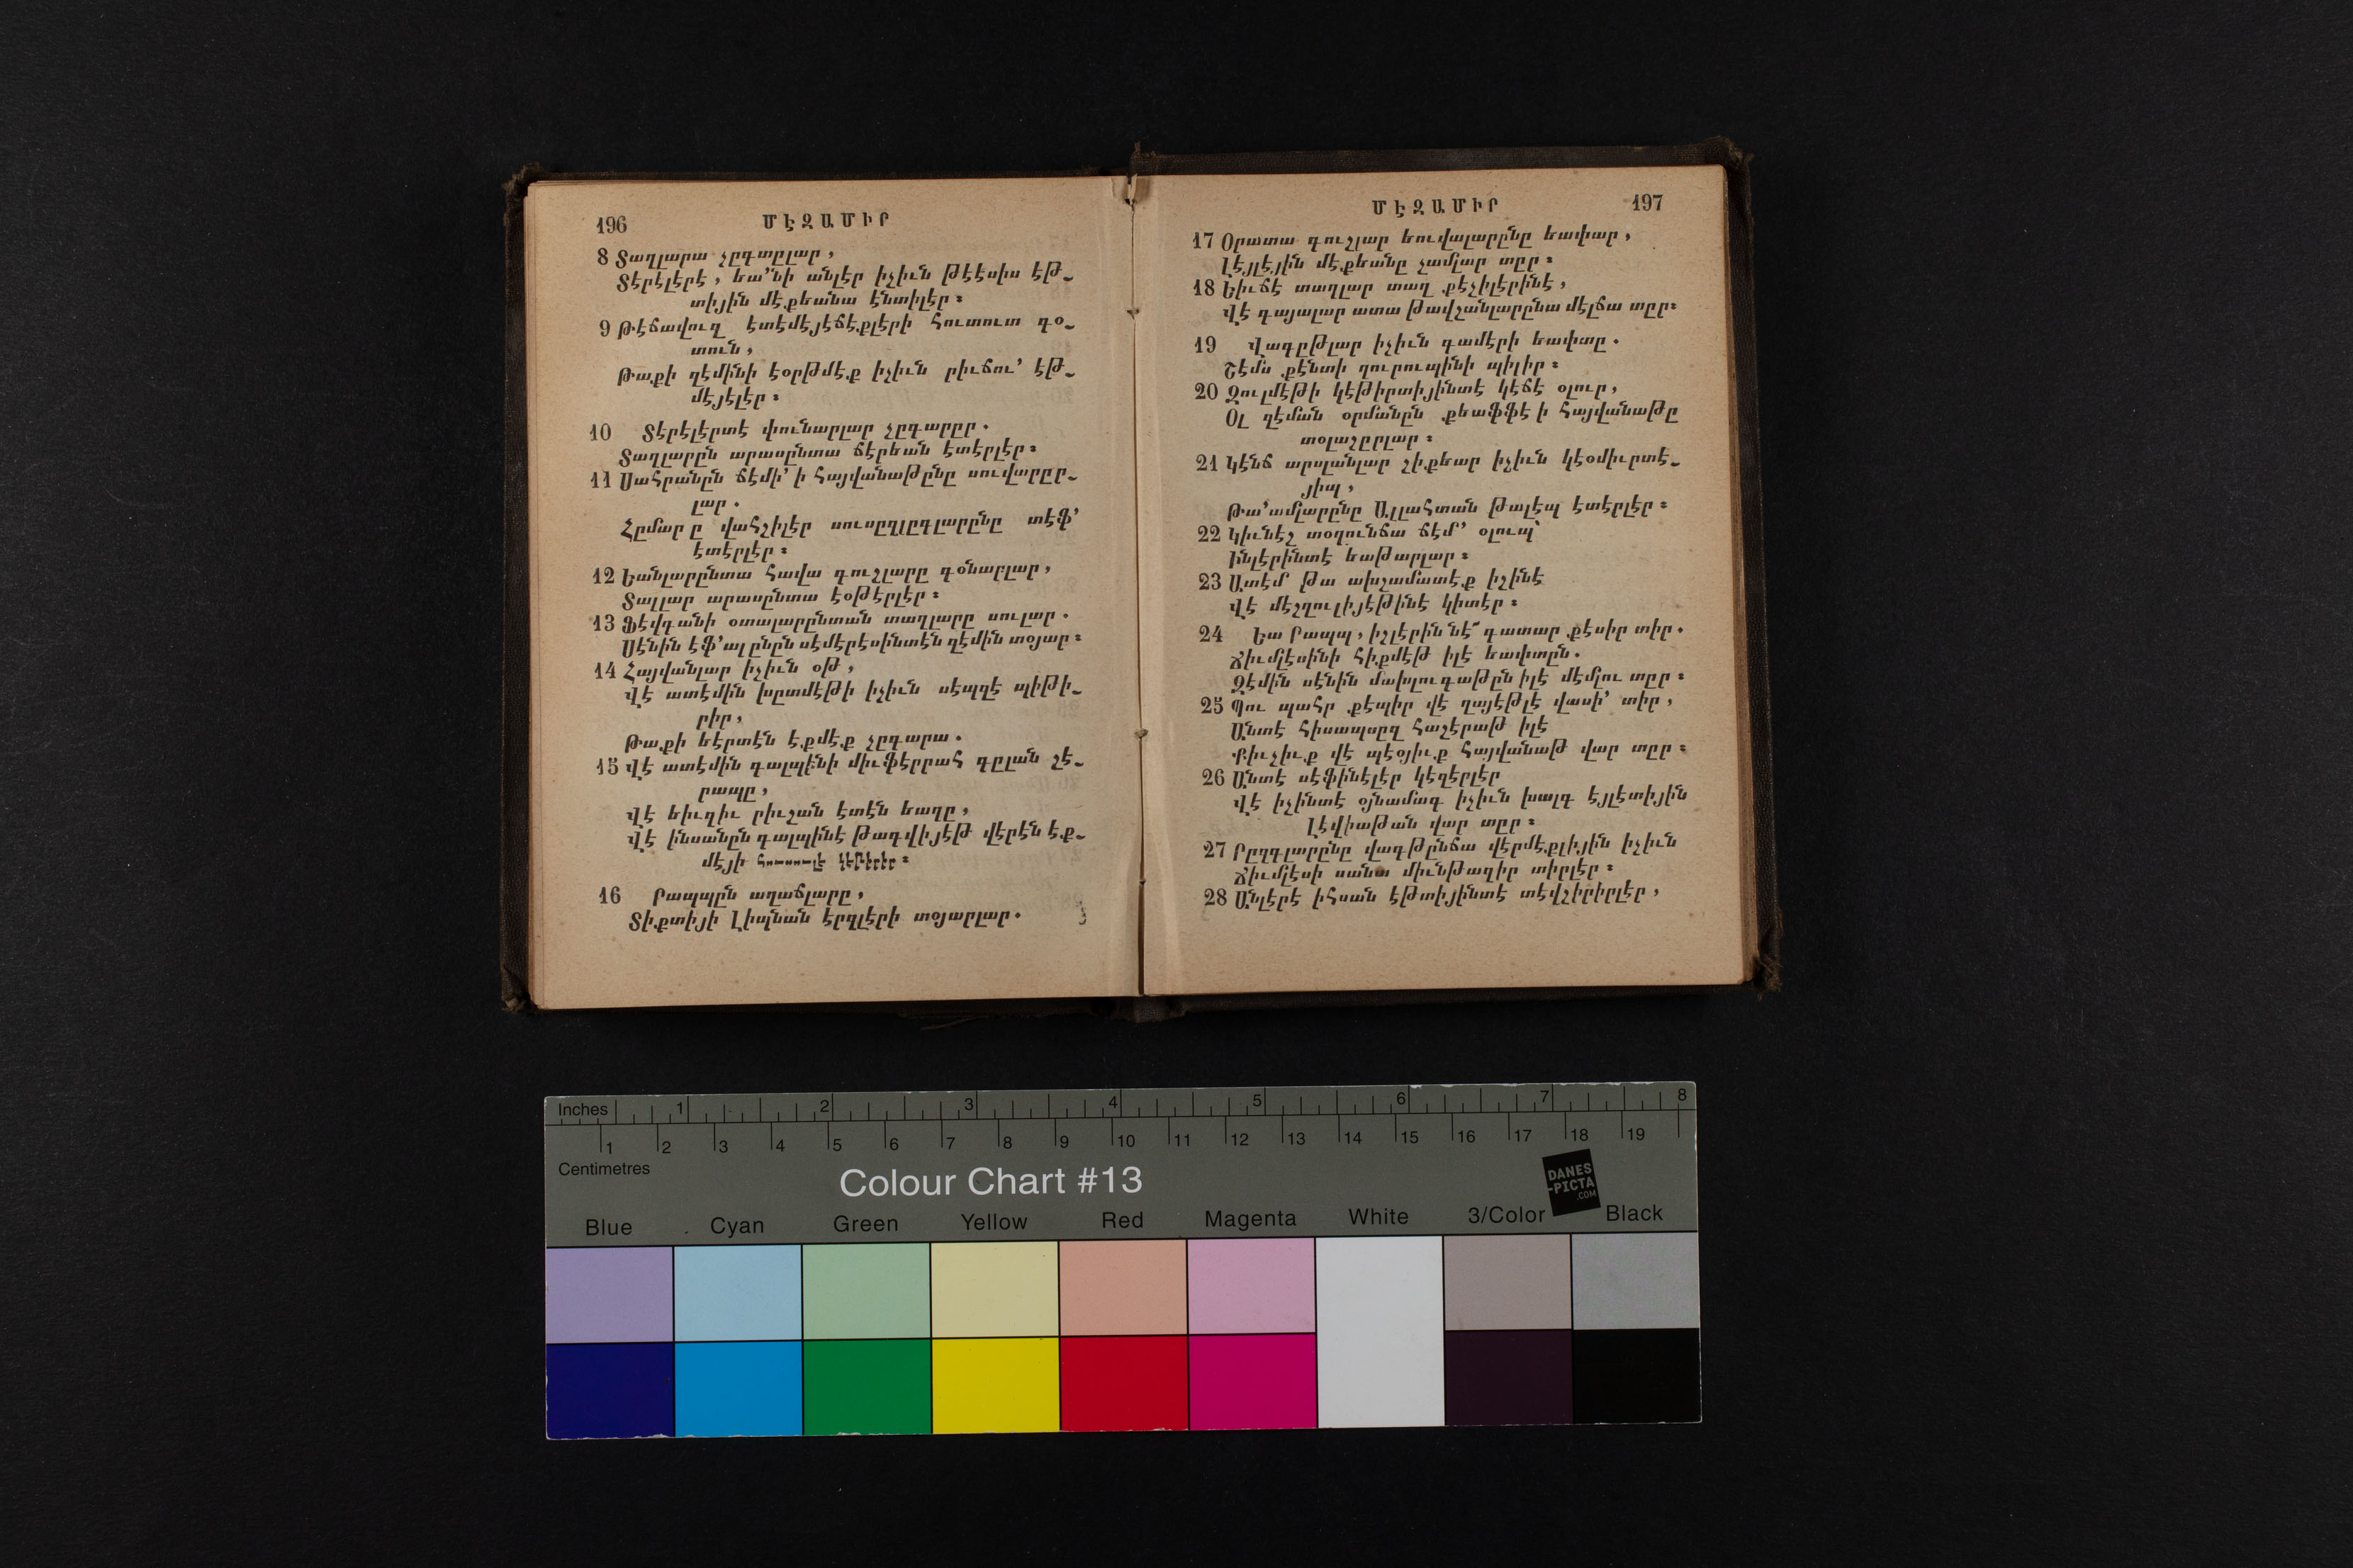 196
ՄԷԶԱՄԻՐ
8 Տաղլարա չըգտըլար,
Տէրէլէրէ, եա՚նի անլէր իչիւն թէէսիս էթ֊
տիյին մէքեանա էնտիլէր։
9 Թէճավուզ էտէմէյէճէքլէրի հուտուտ գօ֊
տուն,
Թաքի զէմինի էօրթմէք իչիւն րիւճու՚ էթ֊
մէյէլէր։
10 Տէրէլէրտէ փունարլար չըգարըր.
Տաղլարըն արասընտա ճէրեան էտէրլէր։
11 Սահրանըն ճէմի՚ ի հայվանաթընը սուվարըր֊
լար.
Հըմար ը վահշիլէր սուսըզլըգլարընը տէֆ՚
էտէրլէր։
12 Եանլարընտա հավա գուշլարը գօնարլար,
Տալլար արասընտա էօթէրլէր։
13 Ֆէվգանի օտալարընտան տաղլարը սուլար.
Սէնին էֆ՚ալ ընըն սէմէրէսինտէն զէմին տօյար։
14 Հայվանլար իչիւն օթ,
Վէ ատէմին խըտմէթի իչիւն սէպզէ պիթի֊
րիր,
Թաքի եէրտէն էքմէք չըգարա.
15 Վէ ատէմին գալպինի միւֆէրրահ գըլան շէ֊
րապը,
Վէ եիւզիւ րիւշան էտէն եաղը,
Վէ ինսանըն գալպինէ թագվիյէթ վէրէն էք֊
մէյի
16 Րապպըն աղաճլարը,
Տիքտիյի Լիպնան էրզլէրի տօյարլար.
ՄԷԶԱՄԻՐ
197
17 Օրատա գուշլար եուվալարընը եափար,
Լէյլէյին մէքեանը չամլար տըր։
18 Եիւճէ տաղլար տաղ քէչիլէրինէ,
Վէ գայալար ատա թավշանլարընա մէլճա տըր։
19 Վագըթլար իչիւն գամէրի եափտը.
Շէմս քէնտի ղուրուպինի պիլիր։
20 Զուլմէթի կէթիրտիյինտէ կէճէ օլուր,
Օլ զէման օրմանըն քեաֆֆէ ի հայվանաթը
տօլաշըրլար։
21 Կէնճ արսլանլար շիքեար իչիւն կէօմիւրտէ֊
յիպ,
Թա՚ամլարընը Ալլահտան թալէպ էտէրլէր։
22 Կիւնէշ տօղունճա ճէմ՚ օլուպ՝
Ինլէրինտէ եաթարլար։
23 Ատէմ թա ախշամատէք իշինէ
Վէ մէշղուլիյէթինէ կիտէր։
24 Եա Րապպ, իշլէրին նէ՞ գատար քէսիր տիր.
Ճիւմլէսինի հիքմէթ իլէ եափտըն.
Զէմին սէնին մախլուգաթըն իլէ մէմլու տըր։
25 Պու պահր քէպիր վէ ղայէթլէ վասի՚ տիր,
Անտէ հիսապսըզ հաշէրաթ իլէ
Քիւչիւք վէ պէօյիւք հայվանաթ վար տըր։
26 Անտէ սէֆինէլէր կէզէրլէր
Վէ իչինտէ օյնամագ իչիւն խալգ էյլէտիյին
Լէվիաթան վար տըր։
27 Րըզգլարընը վագթընճա վէրմէքլիյին իչիւն
Ճիւմլէսի սանա միւնթազիր տիրլէր։
28 Անլէրէ իհսան էթտիյինտէ տէվշիրիրլէր,
Inches 1 2 3 4 5 6 7 8
1 2 3 4 5 6 7 8 9 10 11 12 13 14 15 16 17 18 19
Centimetres
Colour Chart #13
DANES
-PICTA
.COM
Blue Cyan Green Yellow Red Magenta White 3/Color Black